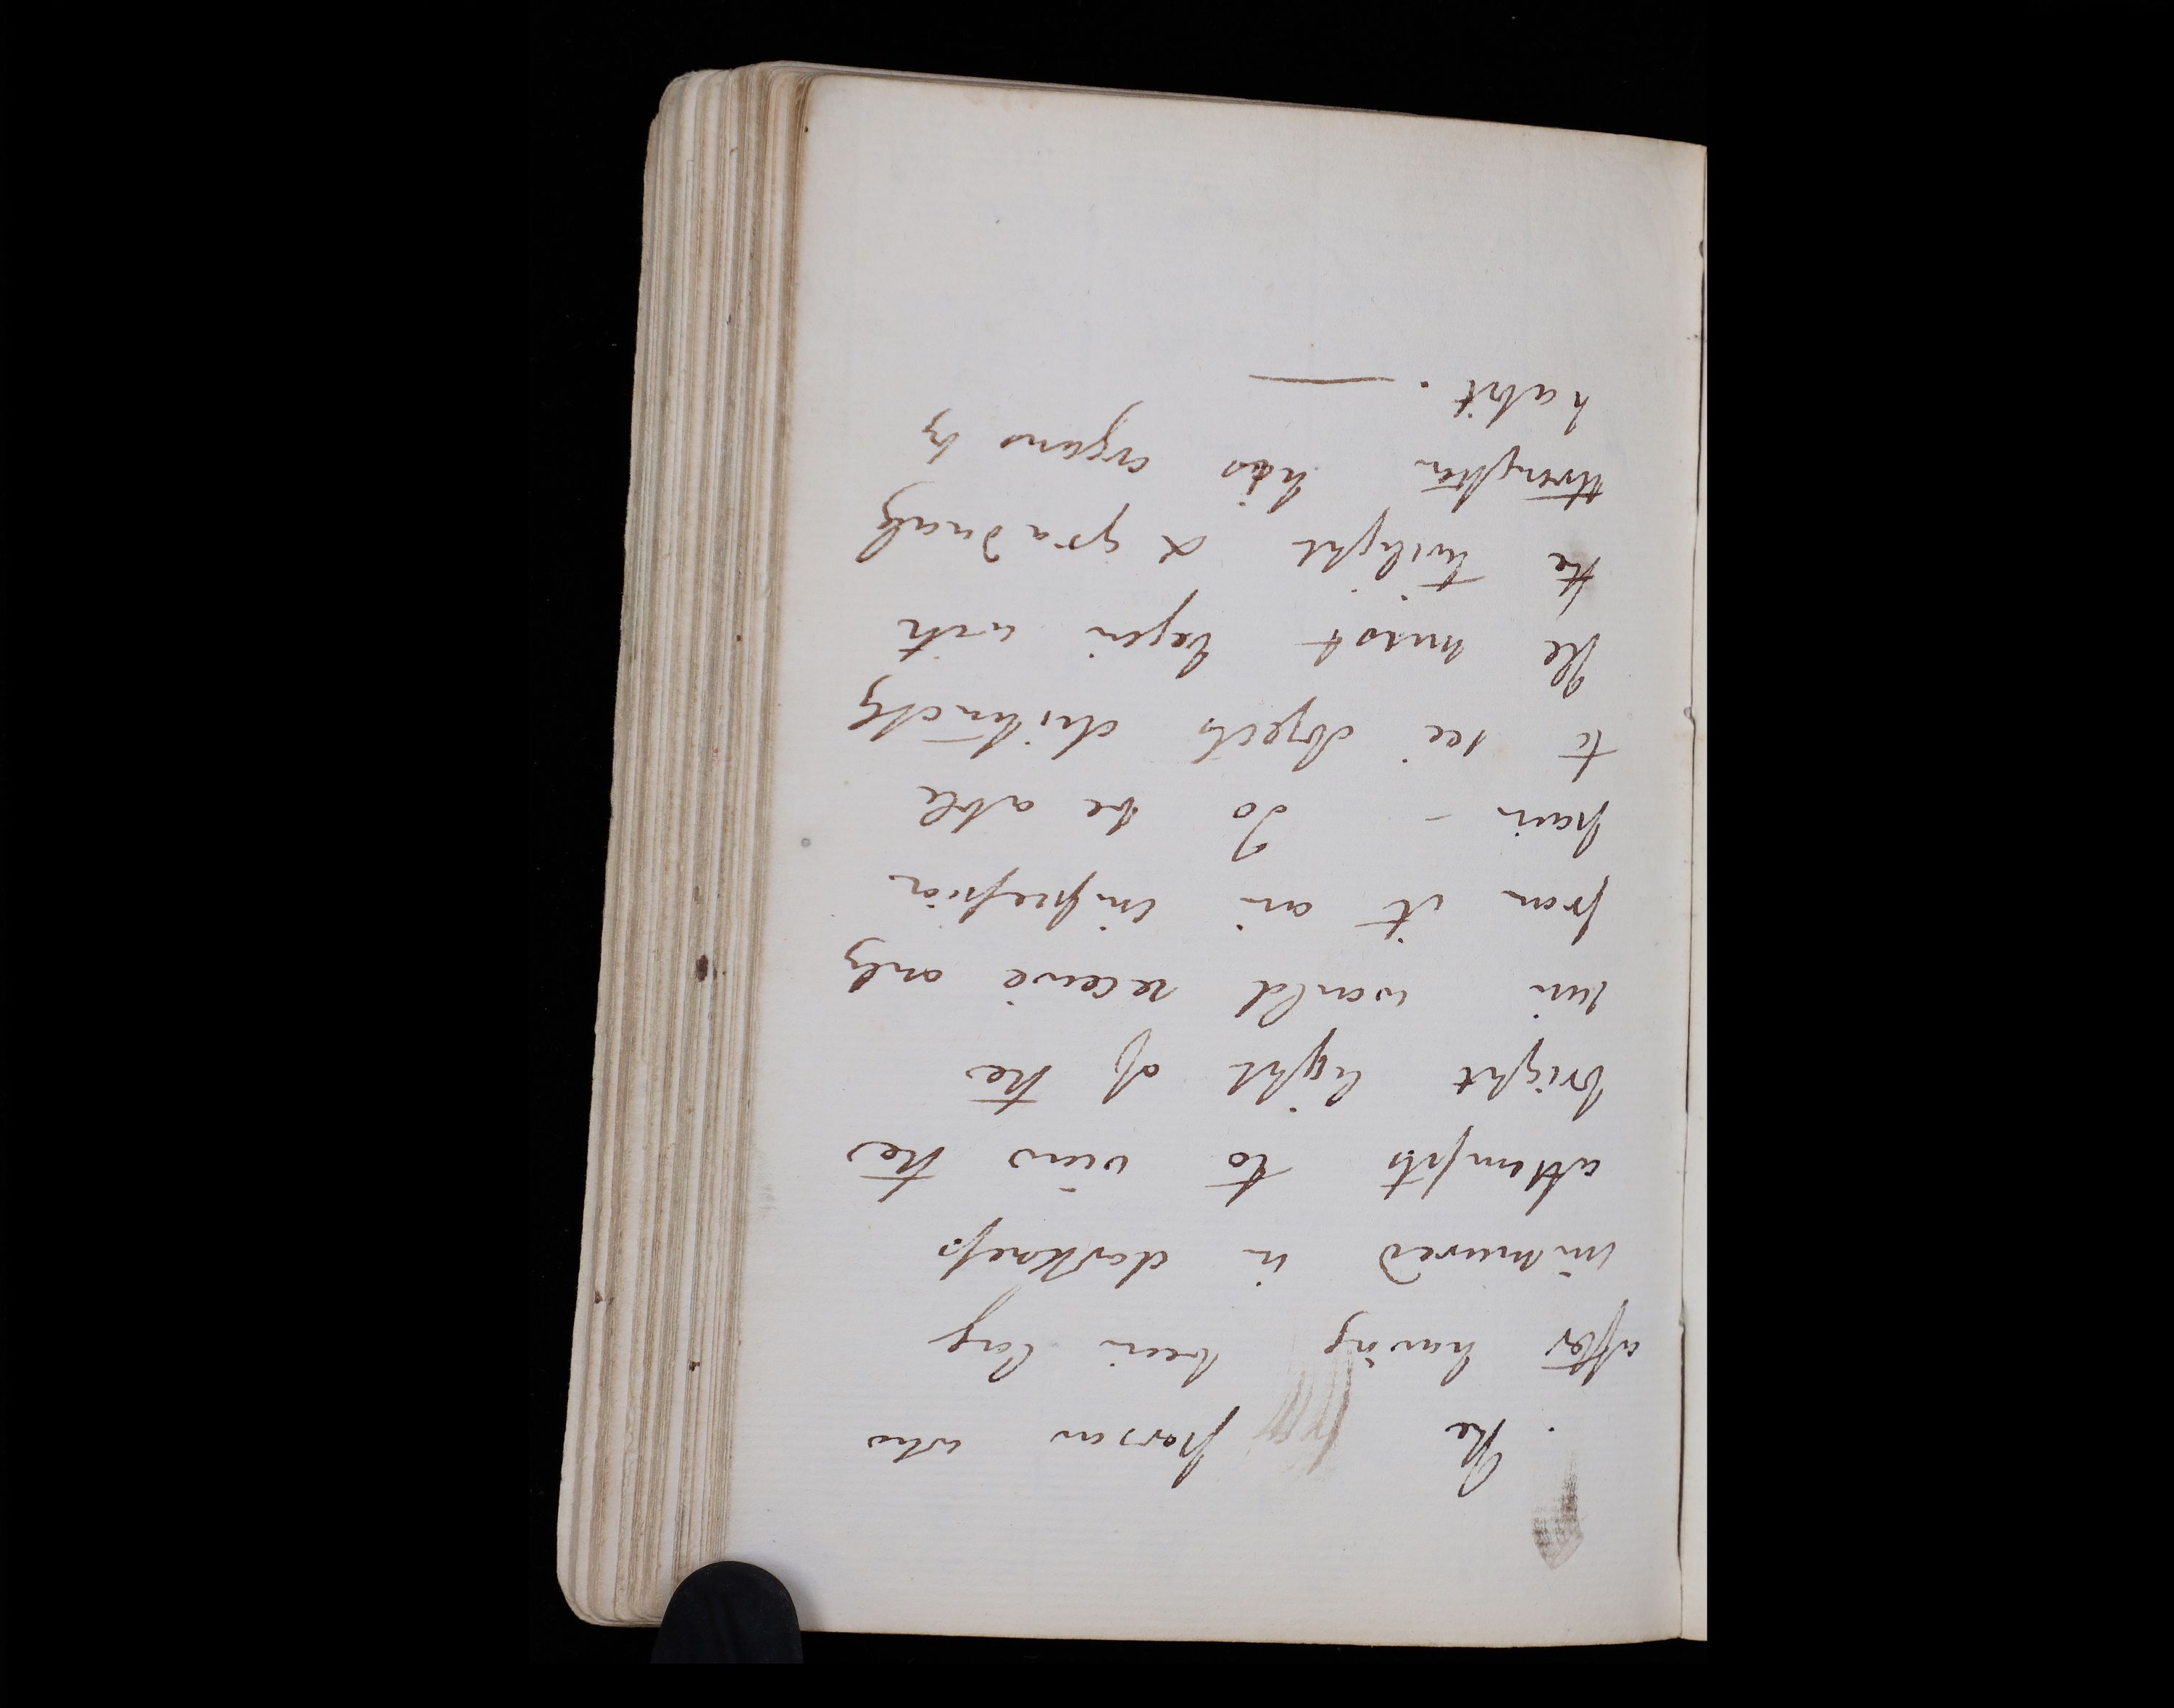 . The person who
after having been long
immured in darkness
attempts to view the
bright light of the
sun would receive only
from it an impression
pain - To be able
to see objects distinctly
He must begin with
the twilight & gradualy
strengthen his organs by
habit. —